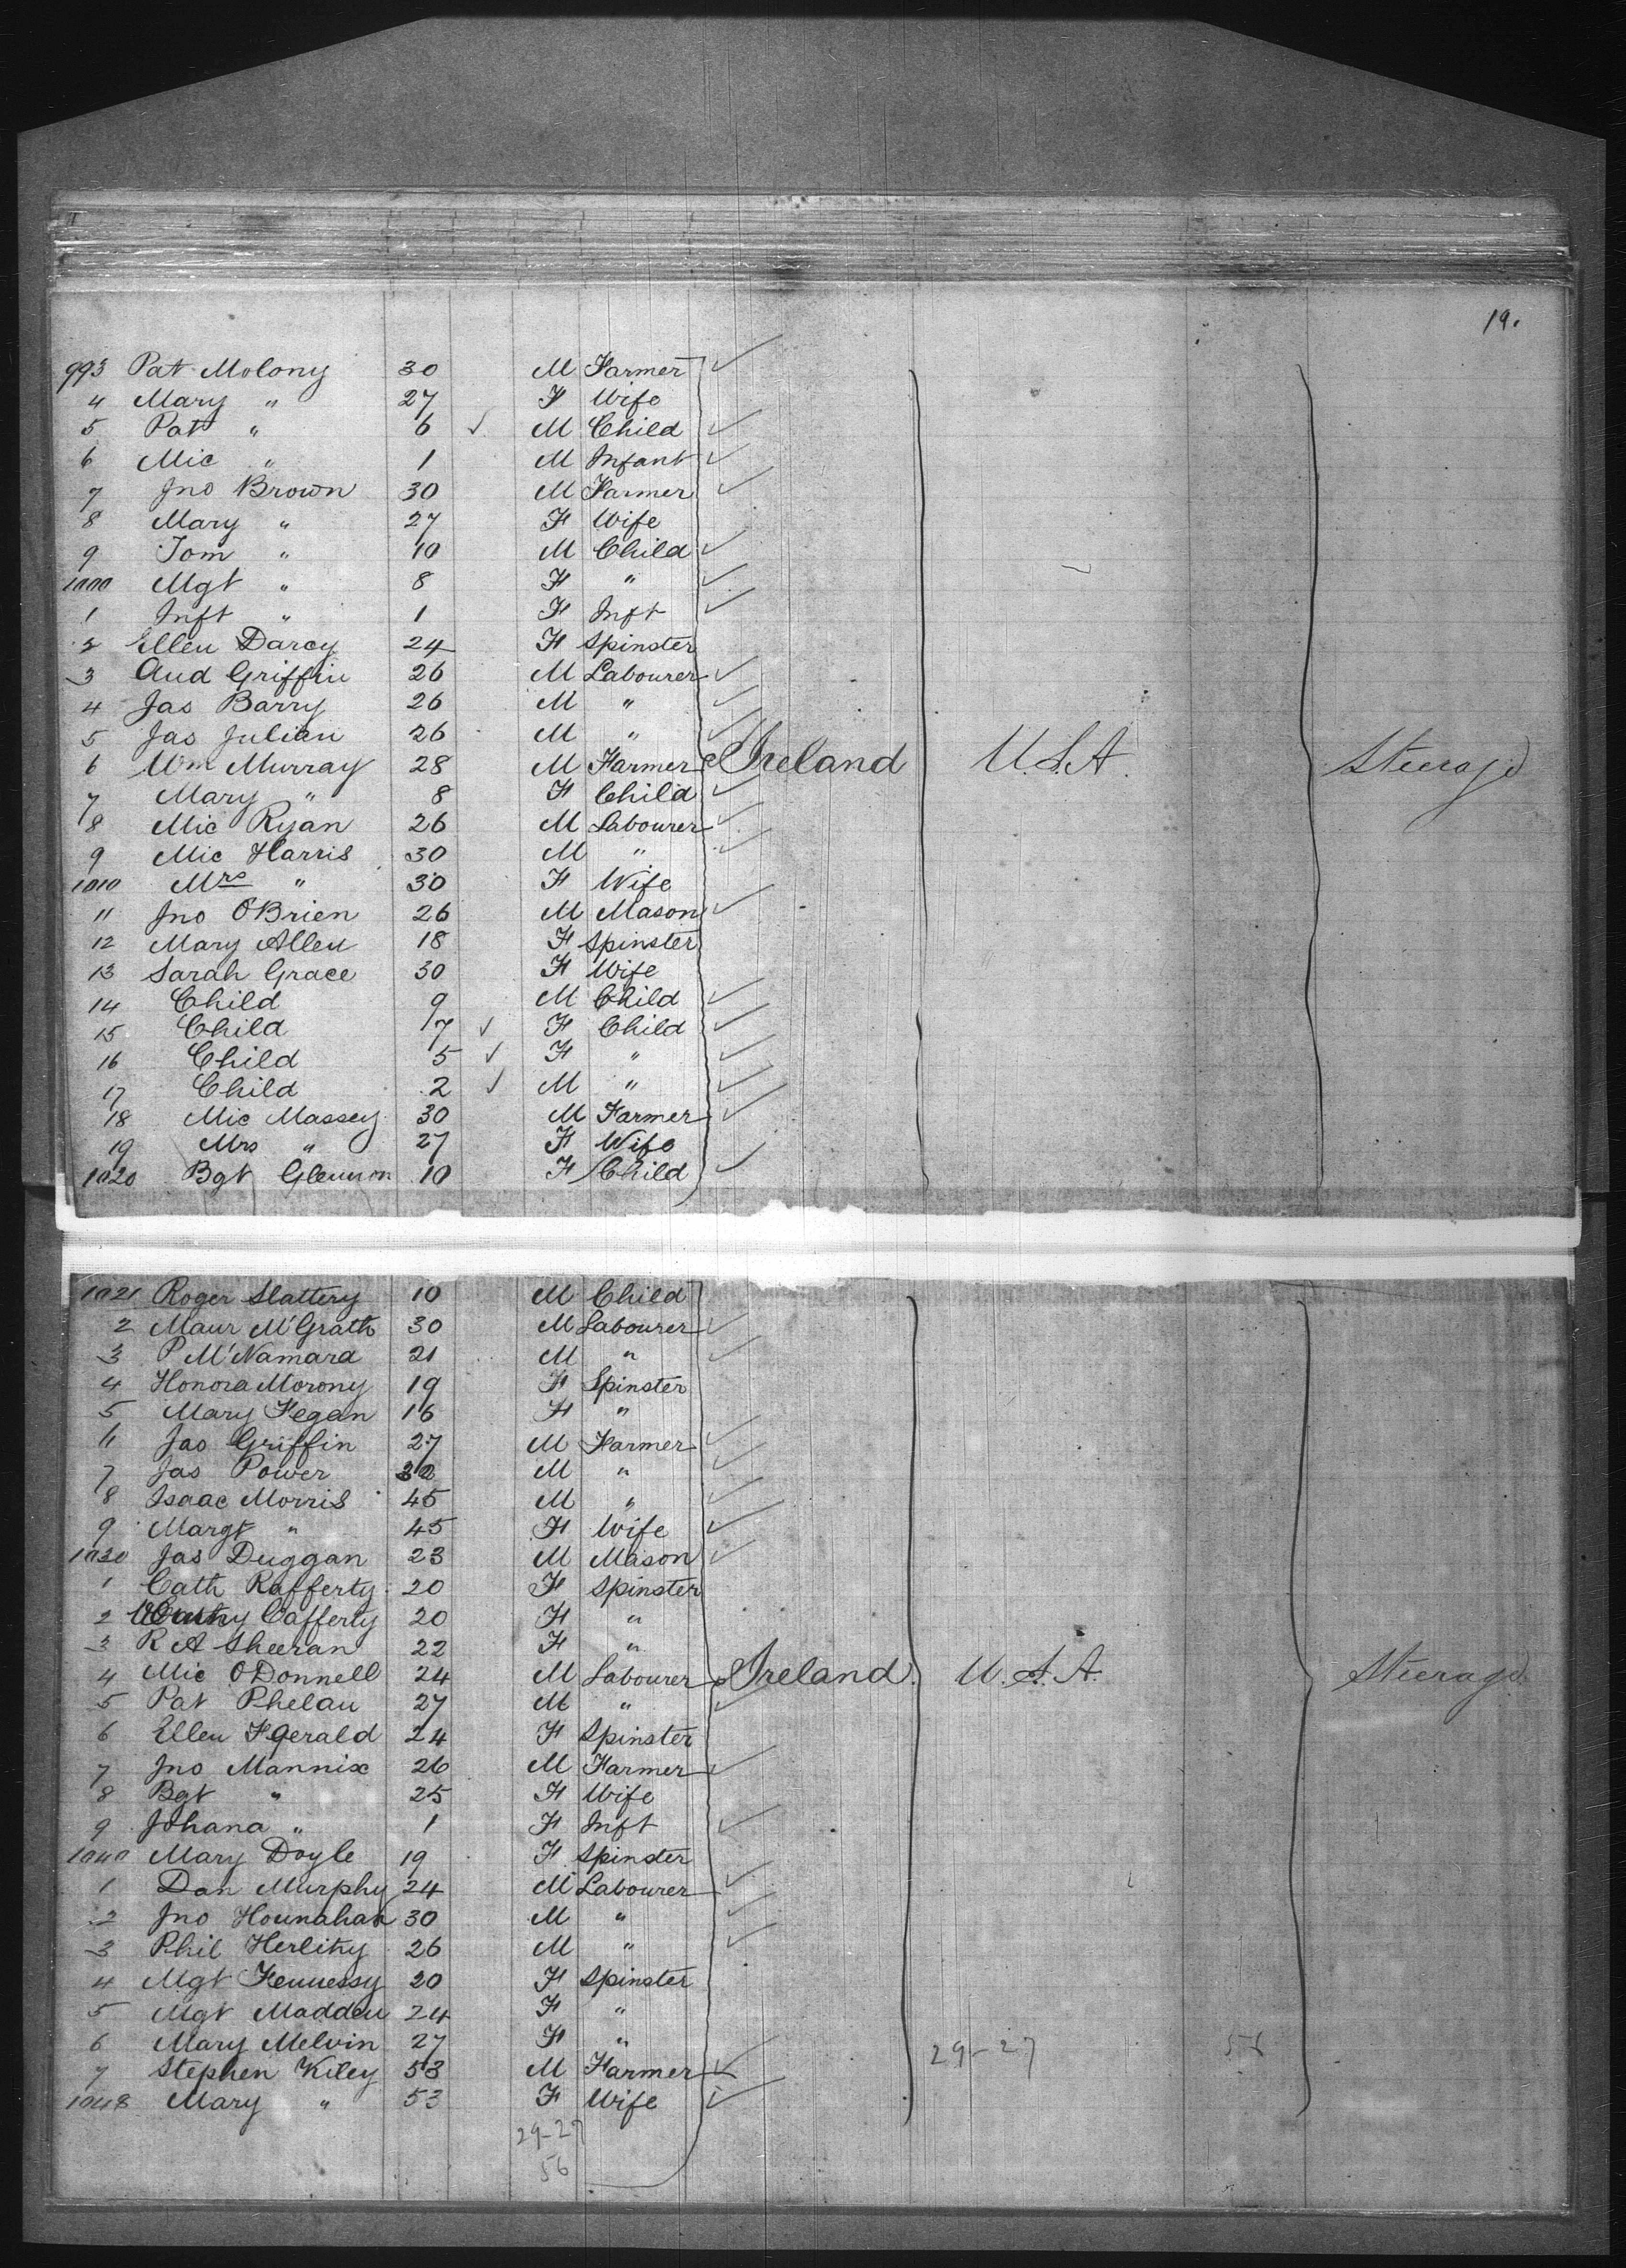 19.
993 Pat Molony 30 M Farmer
4 Mary " 27 F Wife
5 Pat " 6 ✓ M Child ✓
6 Mic " 1 M Infant ✓
7 Jno Brown 30 M Farmer ✓
8 Mary " 27 F Wife
9 Tom " 10 M Child ✓
1000 Mgt " 8 F " ✓
1 Inft " 1 F Inft ✓
2 Ellen Darcy 24 F Spinster
3 And Griffin 26 M Labourer ✓
4 Jas Barry 26 M " ✓
5 Jas Julian 26 M " ✓
6 Wm Murray 28 M Farmer Ireland U.S.A. Steerage
7 Mary " 8 F Child ✓
8 Mic Ryan 26 M Labourer ✓
9 Mic Harris 30 M " ✓
1010 Mrs " 30 F Wife
11 Jno O'Brien 26 M Mason ✓
12 Mary Allen 18 F Spinster
13 Sarah Grace 30 F Wife
14 Child 9 M Child ✓
15 Child 7 ✓ F Child ✓
16 Child 5 ✓ F " ✓
17 Child 2 ✓ M " ✓
18 Mic Massey 30 M Farmer ✓
19 Mrs " 27 F Wife
1020 Bgt Glennon 10 F Child ✓
1021 Roger Slattery 10 M Child
2 Maur McGrath 30 M Labourer ✓
3 P McNamara 21 M " ✓
4 Honora Morony 19 F Spinster
5 Mary Fegan 16 F "
6 Jas Griffin 27 M Farmer ✓
7 Jas Power 32 M " ✓
8 Isaac Morris 45 M " ✓
9 Margt " 45 F Wife ✓
1030 Jas Duggan 23 M Mason ✓
1 Cath Rafferty 20 F Spinster
2 Cafferty 20 F "
3 R A Sheeran 22 F "
4 Mic O'Donnell 24 M Labourer Ireland U.S.A. Steerage
5 Pat Phelan 27 M " ✓
6 Ellen F Gerald 24 F Spinster
7 Jno Mannix 26 M Farmer ✓
8 Bgt " 25 F Wife
9 Johana " 1 F Inft ✓
1040 Mary Doyle 19 F Spinster
1 Dan Murphy 24 M Labourer ✓
2 Jno Hounahan 30 M " ✓
3 Phil Herlihy 26 M " ✓
4 Mgt Hennessy 20 F Spinster
5 Mgt Madden 24 F "
6 Mary Melvin 27 F " 29-27 56
7 Stephen Kiley 53 M Farmer ✓
1048 Mary " 53 F Wife ✓
29-27
56